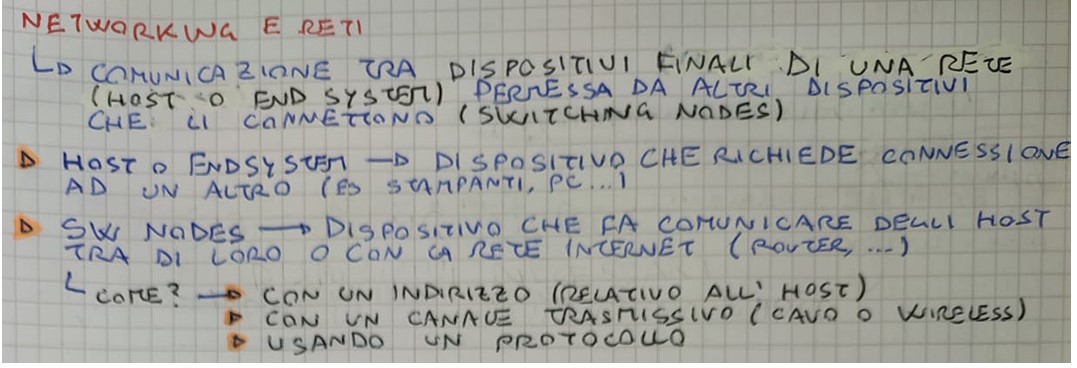 NETWORKING E RETI
↳ COMUNICAZIONE TRA DISPOSITIVI FINALI DI UNA RETE
(HOST O END SYSTEM) PERMESSA DA ALTRI DISPOSITIVI
CHE LI CONNETTONO (SWITCHING NODES)
▷ HOST O ENDSYSTEM → DISPOSITIVO CHE RICHIEDE CONNESSIONE
AD UN ALTRO (ES STAMPANTI, PC...)
▷ SW NODES → DISPOSITIVO CHE FA COMUNICARE DEGLI HOST
TRA DI LORO O CON LA RETE INTERNET (ROUTER, ...)
↳ COME? → CON UN INDIRIZZO (RELATIVO ALL' HOST)
▷ CON UN CANALE TRASMISSIVO (CAVO O WIRELESS)
▷ USANDO UN PROTOCOLLO